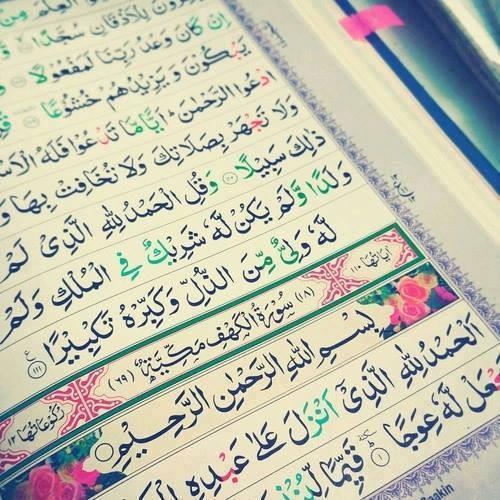 الْعِلْمَ مِنْ
لِلْاَذْقَانِ سُجَّدًا
اِنْ كَانَ وَعْدُ رَبِّنَا لَمَفْعُوْلًا
يَبْكُوْنَ وَ يَزِيْدُهُمْ خُشُوْعًا
ادْعُوا الرَّحْمٰنَ ؕ اَيًّا مَّا تَدْعُوْا فَلَهُ الْاَسْ
وَلَا تَجْهَرْ بِصَلَاتِكَ وَلَا تُخَافِتْ بِهَا وَ
ذٰلِكَ سَبِيْلًا ۝۱۱۰ وَقُلِ الْحَمْدُ لِلّٰهِ الَّذِیْ لَمْ
وَلَدًا وَّلَمْ يَكُنْ لَّهٗ شَرِيْكٌ فِی الْمُلْكِ وَلَمْ
لَّهٗ وَلِیٌّ مِّنَ الذُّلِّ وَكَبِّرْهُ تَكْبِيْرًا ۝۱۱۱ ع
اٰيَاتُهَا ۱۱۰ (۱۸) سُوْرَةُ الْكَهْفِ مَكِّيَّةٌ (۶۹) رُكُوْعَاتُهَا ۱۲
بِسْمِ اللّٰهِ الرَّحْمٰنِ الرَّحِيْمِ
اَلْحَمْدُ لِلّٰهِ الَّذِیْٓ اَنْزَلَ عَلٰی عَبْدِهِ
عَلْ لَّهٗ عِوَجًا ۝۱ قَيِّمًا لِّيُنْ